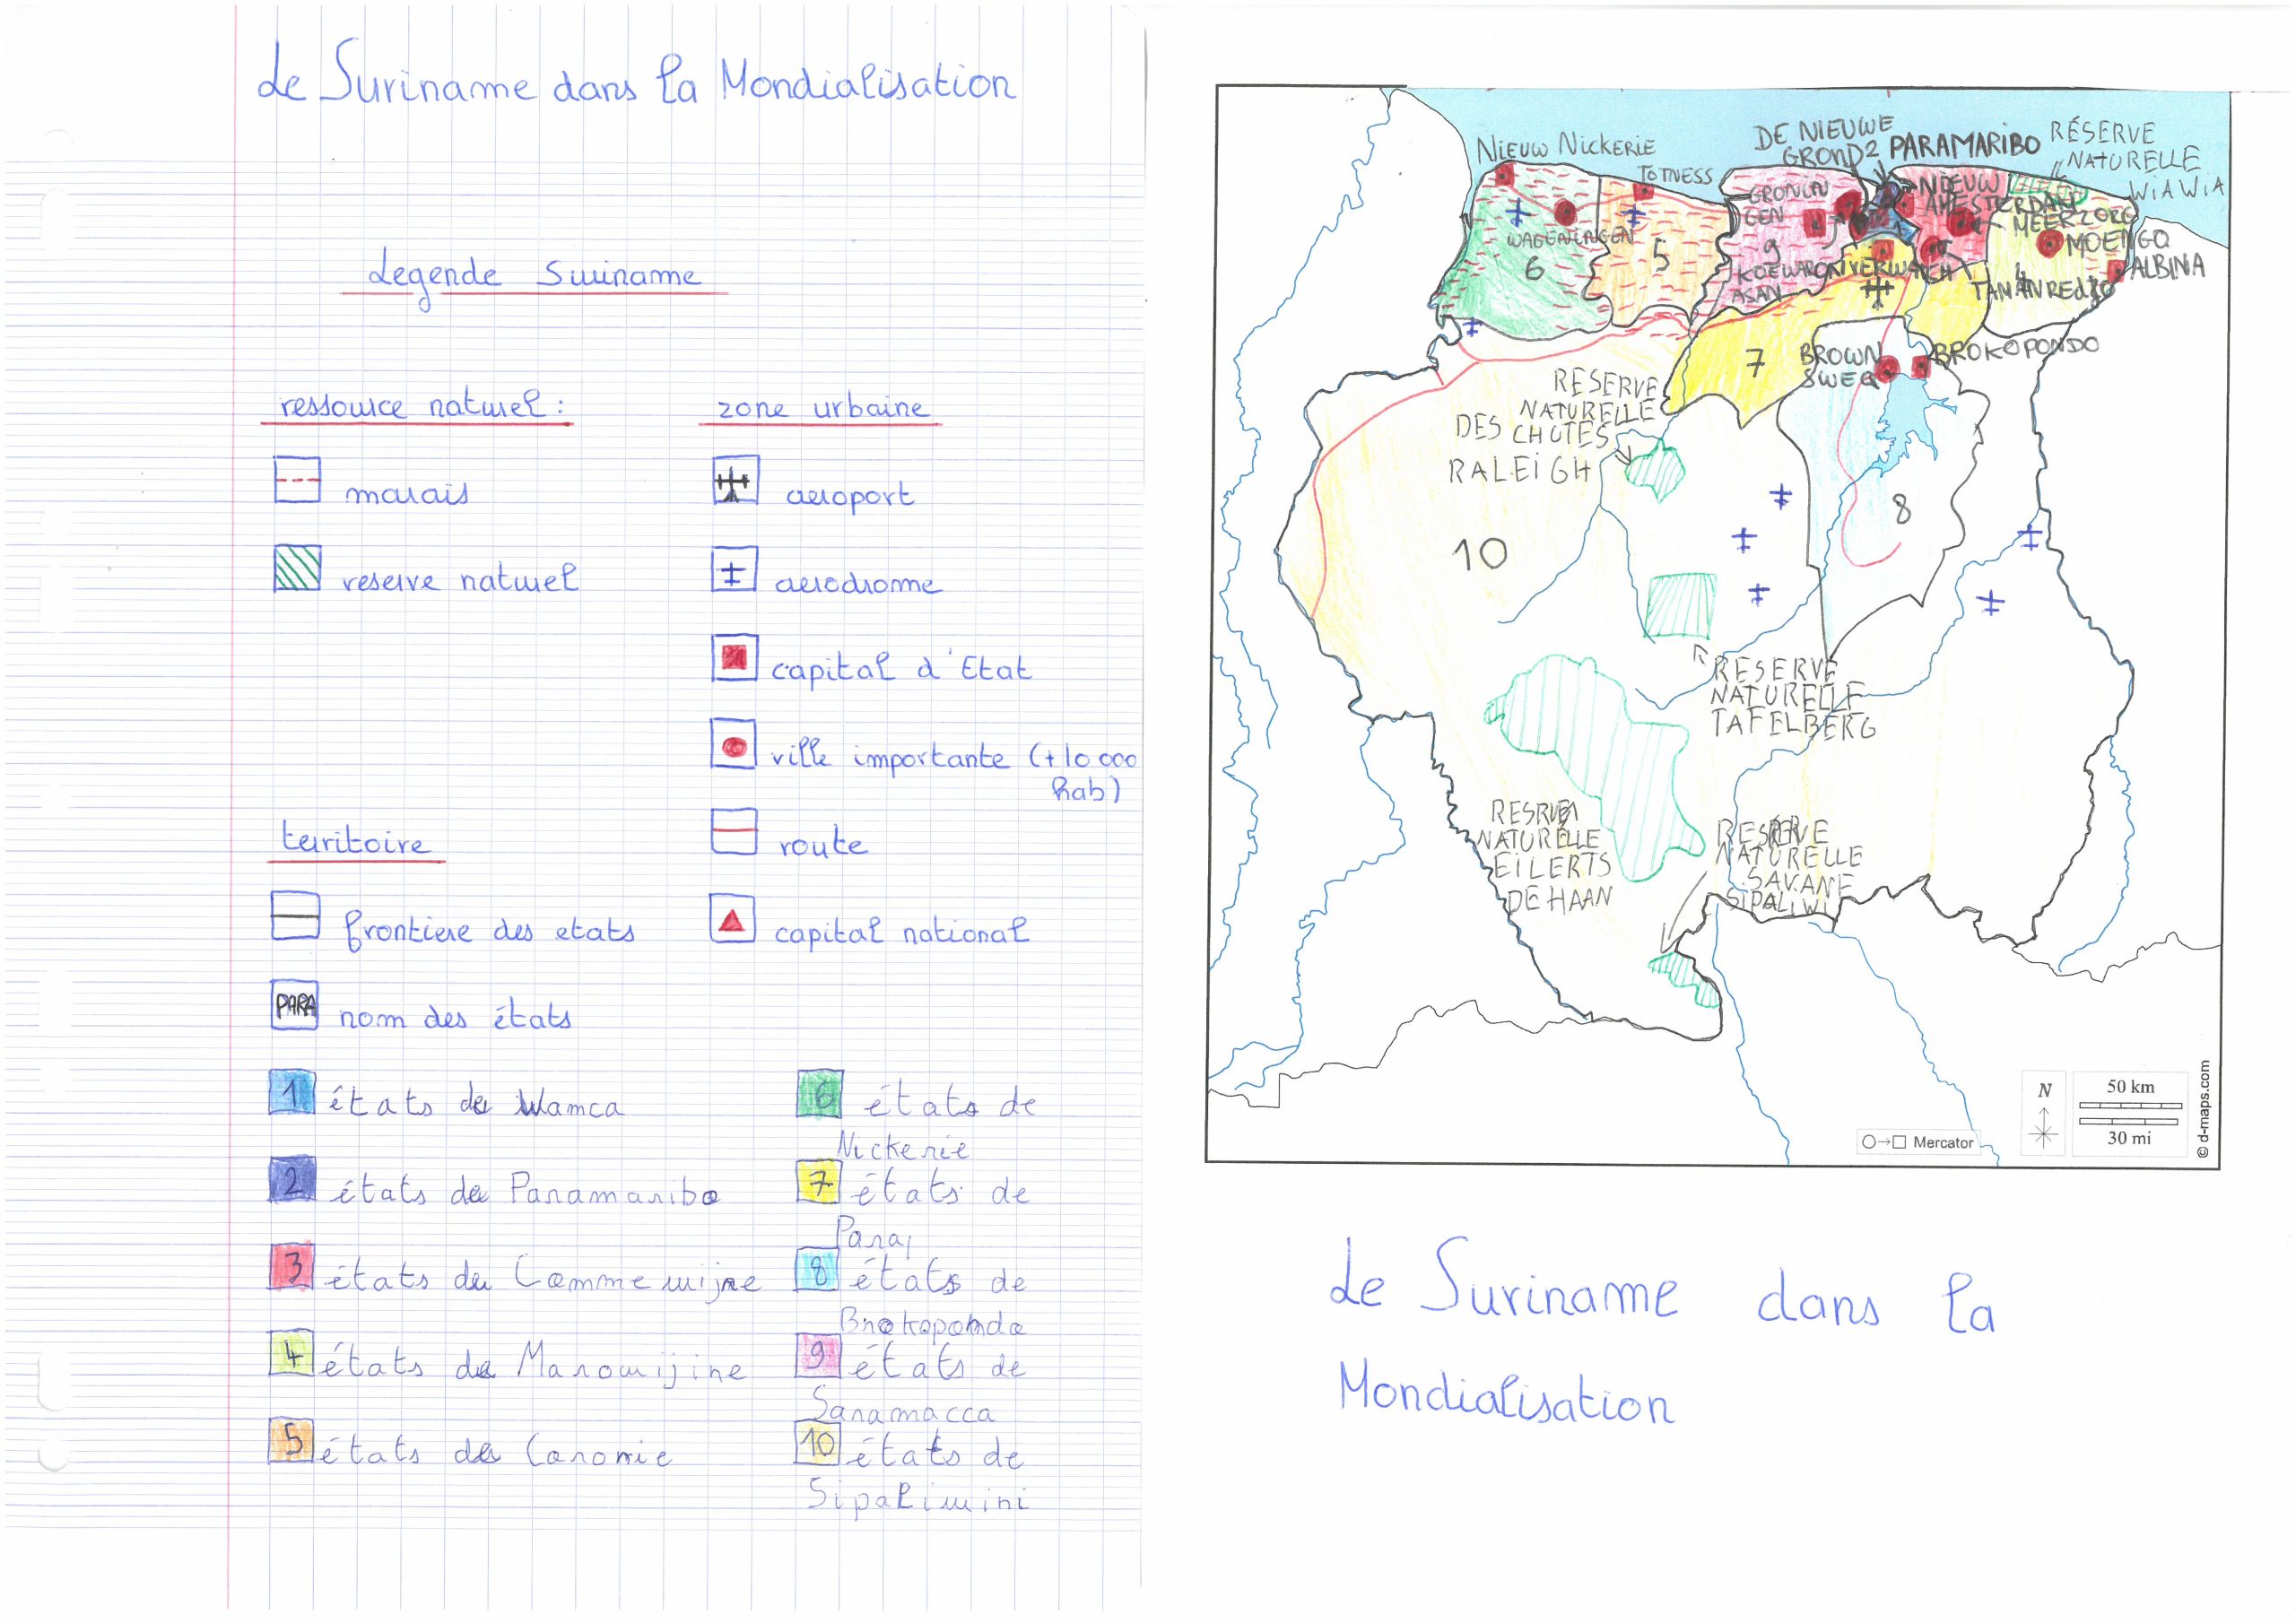 Le Suriname dans la Mondialisation
Legende Suriname
ressource naturel :
marais
reserve naturel
territoire
frontiere des etats
PARA
nom des états
zone urbaine
aeroport
aerodrome
capital d'Etat
ville importante (+10 000
hab)
route
capital national
1 états de Wamca
2 états de Paramaribo
3 états de Commewijne
4 états de Marowijine
5 états de Coronie
6 états de
Nickerie
7 états de
Para
8 états de
Brokopondo
9 états de
Saramacca
10 états de
Sipaliwini
NIEUW NICKERIE
TOTNESS
DE NIEUWE
GROND
2
PARAMARIBO
RÉSERVE
NATURELLE
WIAWIA
GRONIN
GEN
NIEUW
AMESTERDAM
MEERZORG
MOENGO
ALBINA
WAGENINGEN
6
5
9
KOEWAR
ASAN
ONVERWACHT
TAMANREDJO
4
7
BROWN
SWEG
BROKOPONDO
RESERVE
NATURELLE
DES CHUTES
RALEIGH
10
8
RESERVE
NATURELLE
TAFELBERG
NATURELLE
EILERTS
DE HAAN
RESERVE
NATURELLE
SAVANE
SIPALIWI
N
50 km
30 mi
Mercator
© d-maps.com
Le Suriname dans la
Mondialisation